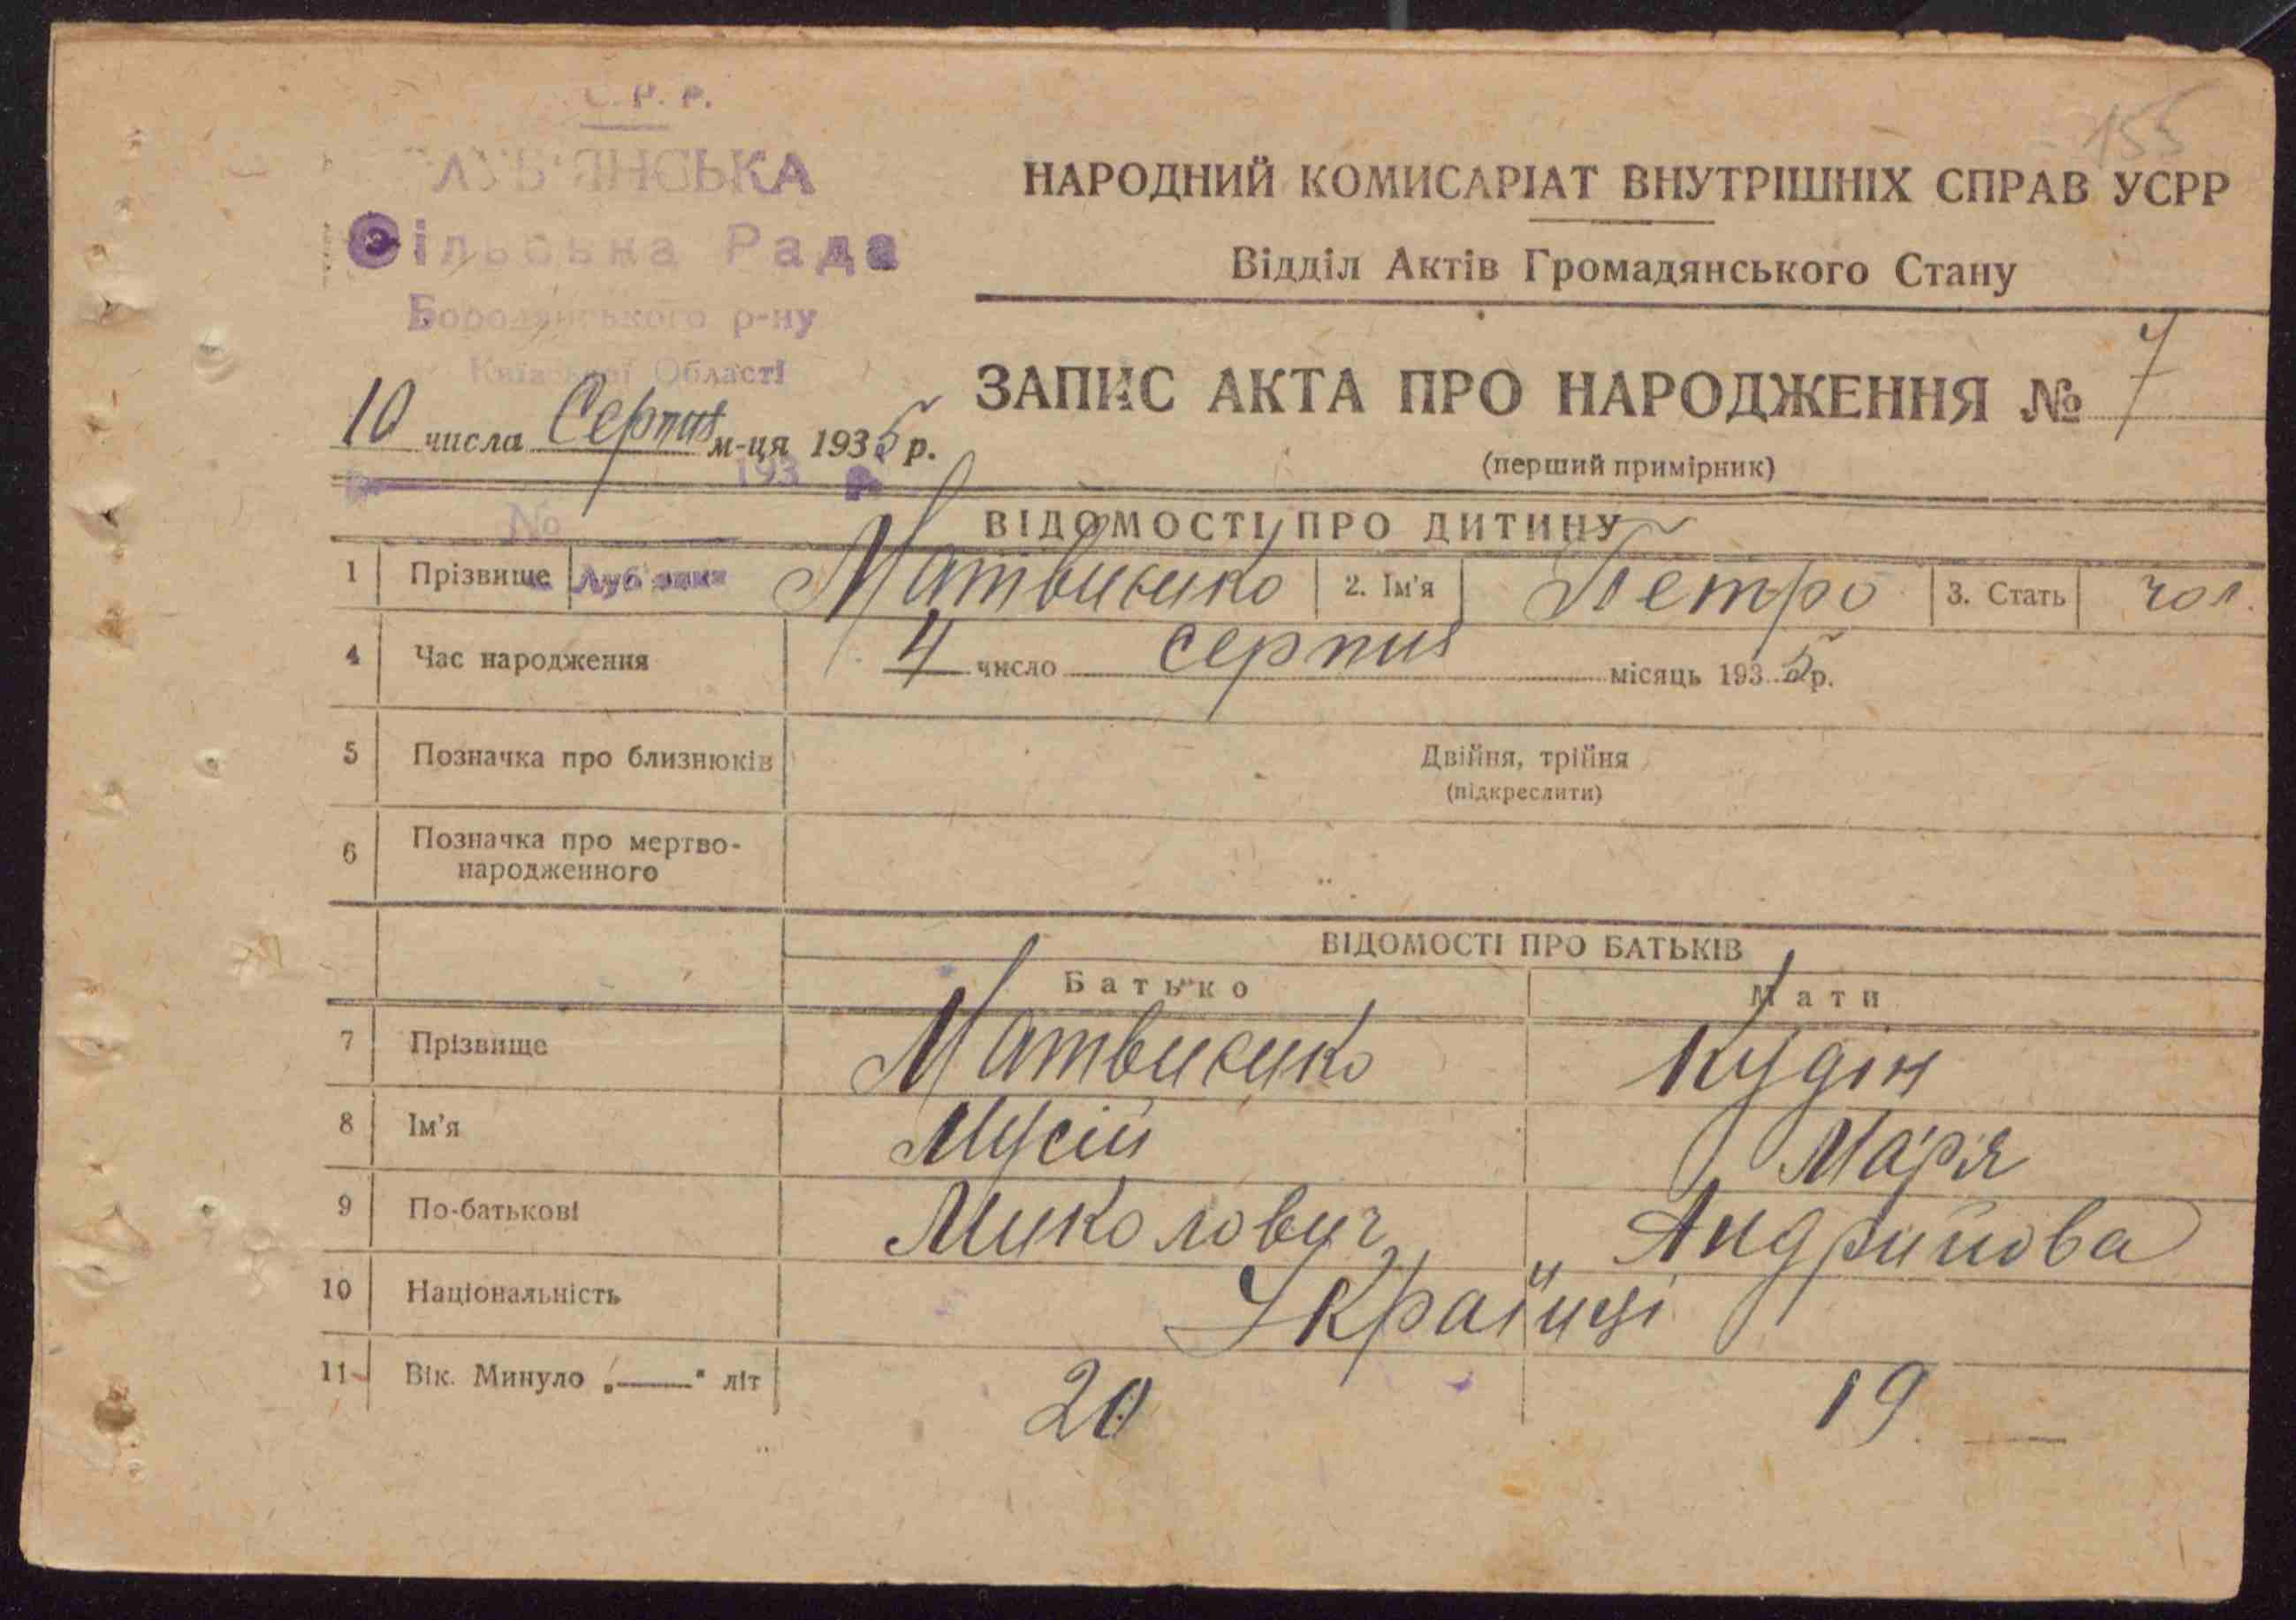 С. Р. Р.
ЛУБ'ЯНСЬКА
Сільська Рада
Бородянського р-ну
Київської Області
10 числа Серпня м-ця 1935 р.
193
№
Луб'янка
155
НАРОДНИЙ КОМИСАРІАТ ВНУТРІШНІХ СПРАВ УСРР
Відділ Актів Громадянського Стану
ЗАПИС АКТА ПРО НАРОДЖЕННЯ № 7
(перший примірник)
ВІДОМОСТІ ПРО ДИТИНУ
1 Прізвище Матвиенко 2. Ім'я Петро 3. Стать чол.
4 Час народження 4 число серпня місяць 1935 р.
5 Позначка про близнюків Двійня, трійня
(підкреслити)
6 Позначка про мертво-
народженного
ВІДОМОСТІ ПРО БАТЬКІВ
Батько Мати
7 Прізвище Матвиенко Кудін
8 Ім'я Мусій Мар'я
9 По-батькові Миколович Андрийова
10 Національність Українці
11 Вік. Минуло „——" літ 20 19